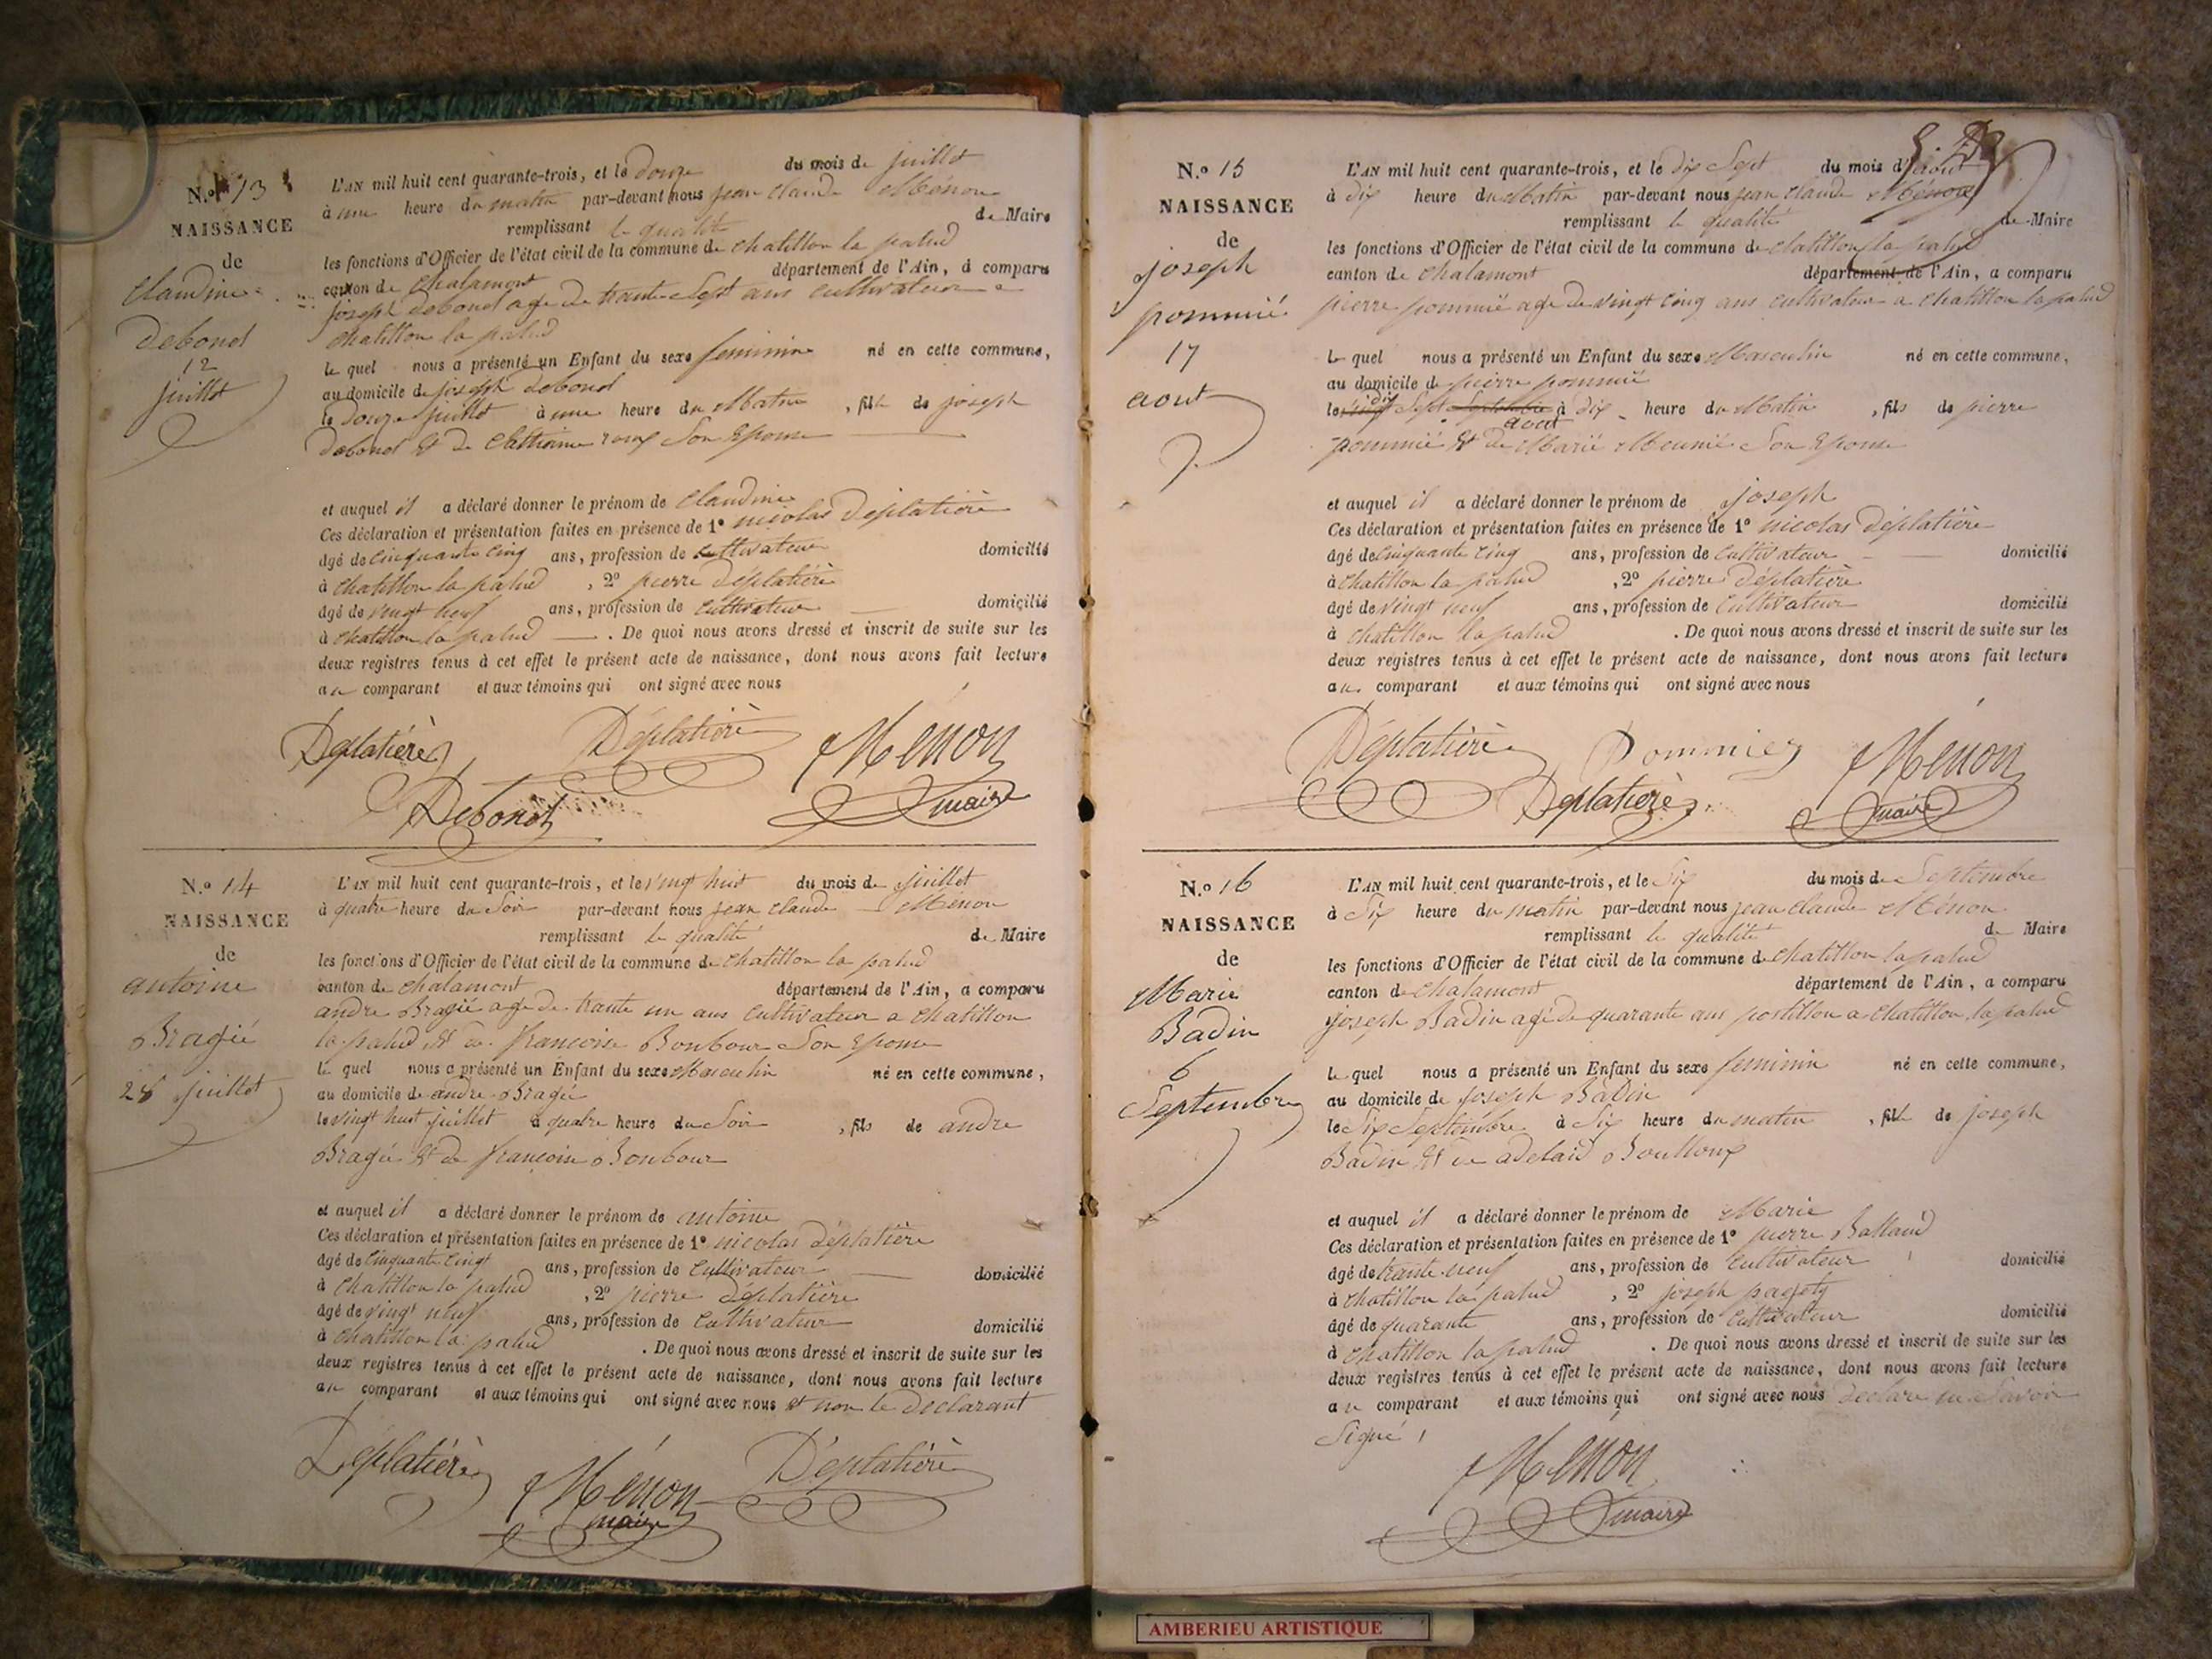 N.º 13
NAISSANCE
de
Claudine
Debond
12
juillet
L'AN mil huit cent quarante-trois, et le douze du mois de juillet
à une heure du matin par-devant nous jean Claude Ménon
remplissant le qualité de Maire
les fonctions d'Officier de l'état civil de la commune de chatillon la palud
canton de chalamont département de l'Ain, a comparu
joseph debond age de trante sept ans cultivateur a
chatillon la palud
le quel nous a présenté un Enfant du sexe feminin né en cette commune,
au domicile de joseph debond
le douze juillet à une heure du Matin, fille de joseph
debond et de Catherine roux Son Epouse
et auquel il a déclaré donner le prénom de Claudine
Ces déclaration et présentation faites en présence de 1º nicolas Déplatière
âgé de cinquante cinq ans, profession de cultivateur domicilié
à chatillon la palud, 2º pierre Déplatière
âgé de vingt neuf ans, profession de cultivateur domicilié
à chatillon la palud. De quoi nous avons dressé et inscrit de suite sur les
deux registres tenus à cet effet le présent acte de naissance, dont nous avons fait lecture
au comparant et aux témoins qui ont signé avec nous
Déplatière Déplatière Ménon
Debond maire
N.º 14
NAISSANCE
de
antoine
Bragié
28 juillet
L'AN mil huit cent quarante-trois, et le vingt huit du mois de juillet
à quatre heure du Soir par-devant nous jean Claude Ménon
remplissant le qualité de Maire
les fonctions d'Officier de l'état civil de la commune de chatillon la palud
canton de chalamont département de l'Ain, a comparu
andre Bragié age de trante un ans cultivateur a chatillon
la palud et de francoise Bonbour Son Epouse
le quel nous a présenté un Enfant du sexe Masculin né en cette commune,
au domicile de andre Bragié
le vingt huit juillet à quatre heure du Soir, fils de andre
Bragié et de francoise Bonbour
et auquel il a déclaré donner le prénom de antoine
Ces déclaration et présentation faites en présence de 1º nicolas Déplatière
âgé de Cinquante Cinqt ans, profession de cultivateur domicilié
à chatillon la palud, 2º pierre déplatière
âgé de vingt neuf ans, profession de cultivateur domicilié
à chatillon la palud. De quoi nous avons dressé et inscrit de suite sur les
deux registres tenus à cet effet le présent acte de naissance, dont nous avons fait lecture
au comparant et aux témoins qui ont signé avec nous et non le declarant
Déplatière Ménon Déplatière
maire
N.º 15
NAISSANCE
de
joseph
pommié
17
aout
L'AN mil huit cent quarante-trois, et le dix Sept du mois d'aout
à dix heure du Matin par-devant nous jean Claude Ménon
remplissant le qualité de Maire
les fonctions d'Officier de l'état civil de la commune de chatillon la palud
canton de chalamont département de l'Ain, a comparu
pierre pommié age de vingt cinq ans cultivateur a chatillon la palud
le quel nous a présenté un Enfant du sexe Masculin né en cette commune,
au domicile de pierre pommié
le dix Sept aout à dix heure du Matin, fils de pierre
pommié et de Marie Meunié Son Epouse
et auquel il a déclaré donner le prénom de joseph
Ces déclaration et présentation faites en présence de 1º nicolas Déplatière
âgé de cinquante cinq ans, profession de cultivateur domicilié
à chatillon la palud, 2º pierre Déplatière
âgé de vingt neuf ans, profession de cultivateur domicilié
à chatillon la palud. De quoi nous avons dressé et inscrit de suite sur les
deux registres tenus à cet effet le présent acte de naissance, dont nous avons fait lecture
au comparant et aux témoins qui ont signé avec nous
Déplatière Pommier Ménon
Déplatière maire
N.º 16
NAISSANCE
de
Marie
Badin
6
Septembre
L'AN mil huit cent quarante-trois, et le Six du mois de Septembre
à Six heure du matin par-devant nous jean Claude Ménon
remplissant le qualité de Maire
les fonctions d'Officier de l'état civil de la commune de chatillon la palud
canton de chalamont département de l'Ain, a comparu
joseph Badin agé de quarante ans postillon a chatillon la palud
le quel nous a présenté un Enfant du sexe feminin né en cette commune,
au domicile de joseph Badin
le Six Septembre à Six heure du matin, fille de joseph
Badin et de adelaid Boulloux
et auquel il a déclaré donner le prénom de Marie
Ces déclaration et présentation faites en présence de 1º pierre Balland
âgé de trante neuf ans, profession de cultivateur domicilié
à chatillon la palud, 2º joseph
âgé de quarante ans, profession de cultivateur domicilié
à chatillon la palud. De quoi nous avons dressé et inscrit de suite sur les
deux registres tenus à cet effet le présent acte de naissance, dont nous avons fait lecture
au comparant et aux témoins qui ont signé avec nous declare ne Savoir
Signé
Ménon
maire
AMBERIEU ARTISTIQUE